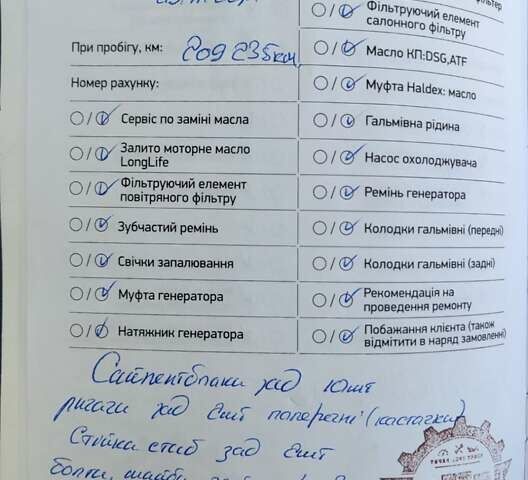 фільтру
Фільтруючий елемент
салонного фільтру
При пробігу, км: 209 235км,
Масло КП:DSG,ATF
Номер рахунку:
Муфта Haldex: масло
Сервіс по заміні масла
Гальмівна рідина
Залито моторне масло
LongLife
Насос охолоджувача
Фільтруючий елемент
повітряного фільтру
Ремінь генератора
Зубчастий ремінь
Колодки гальмівні (передні)
Свічки запалювання
Колодки гальмівні (задні)
Муфта генератора
Рекомендація на
проведення ремонту
Натяжник генератора
Побажання клієнта (також
відмітити в наряд замовленні)
Сайлентблоки зад 10шт
ричаги зад 2шт поперечні (кастачка)
Стійка стаб зад 2шт
болти, шайби